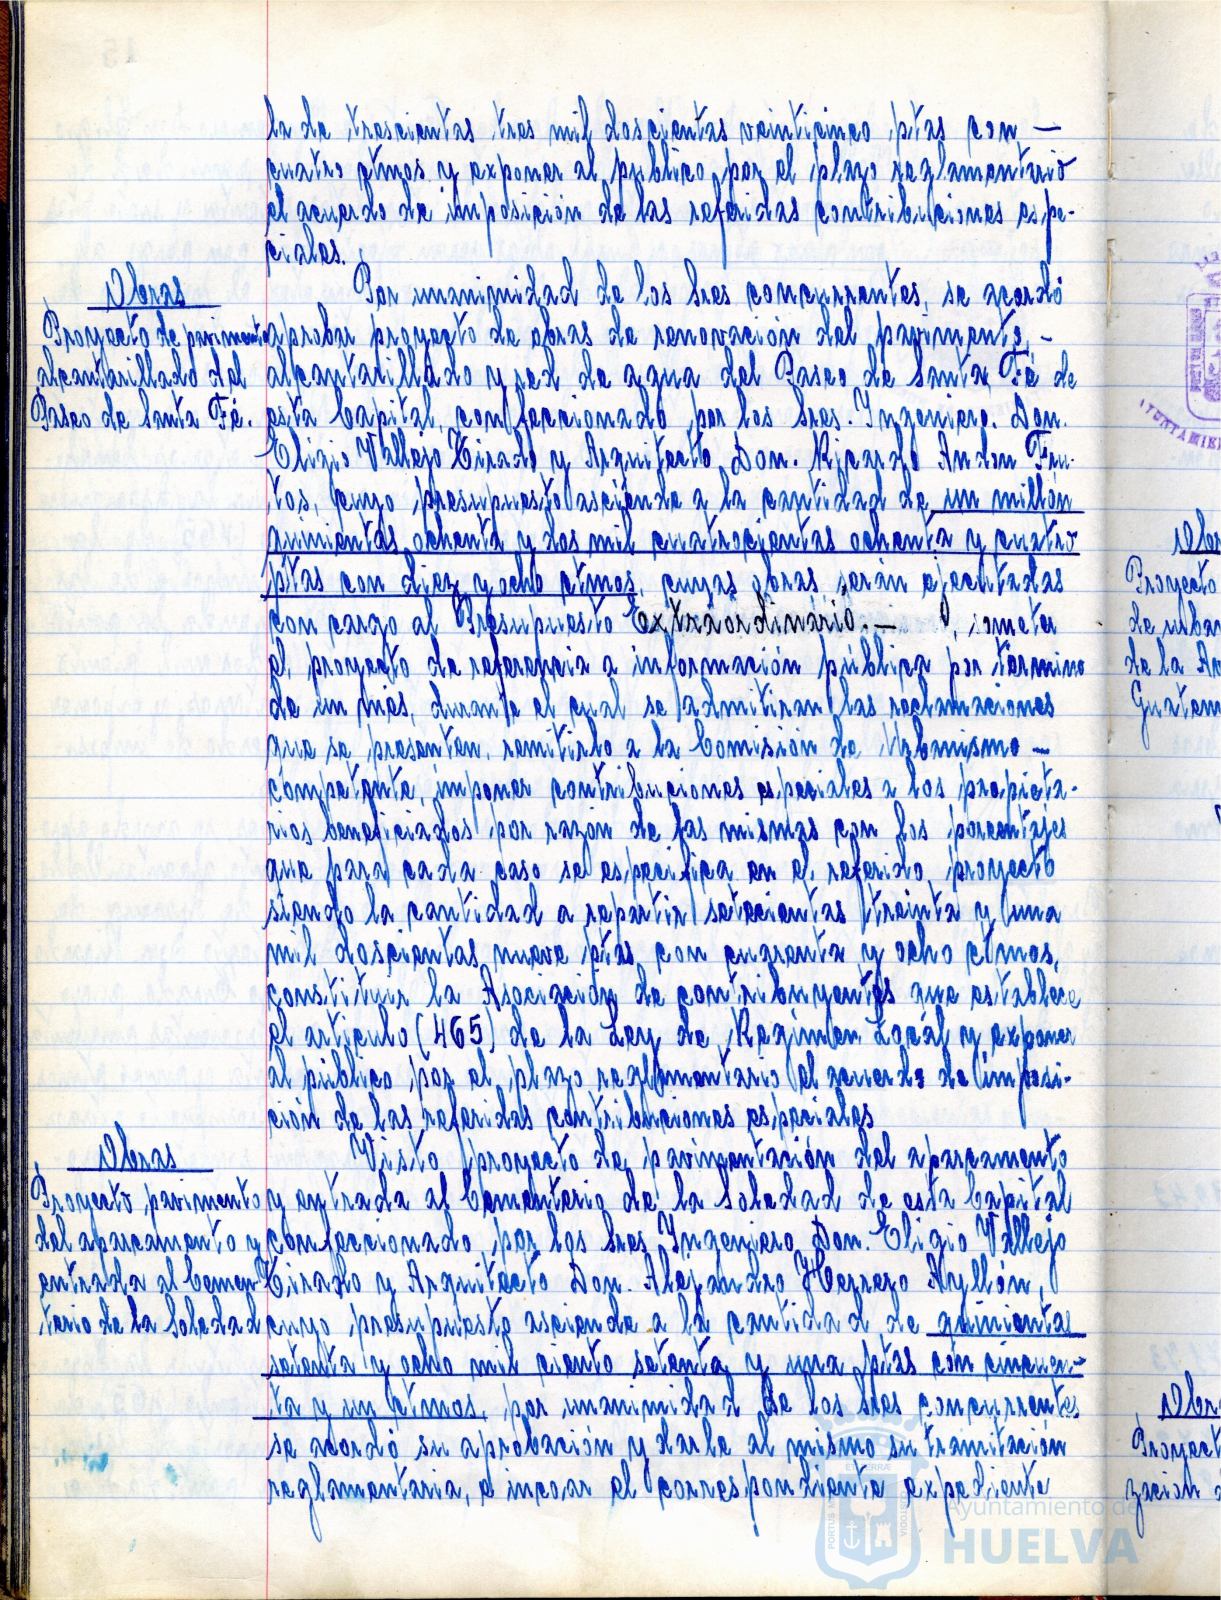 la de trescientas tres mil doscientas veinticinco ptas con —
cuatro ctmos y exponer al publico por el plazo reglamentario
el acuerdo de imposición de las referidas contribuciones espe-
ciales.
Obras
Proyecto de pavimento
alcantarillado del
Paseo de Santa Fé.
Por unanimidad de los Sres concurrentes, se acordó
aprobar proyecto de obras de renovación del pavimento, -
alcantarillado y red de agua del Paseo de Santa Fé de
esta Capital, confeccionado por los Sres. Ingeniero. Don.
Eligio Vallejo Tirado y Arquitecto Don. Ricardo Andon Fru-
tos, cuyo presupuesto asciende a la cantidad de un millón
quinientas ochenta y dos mil cuatrocientas ochenta y cuatro
ptas con diez y ocho ctmos, cuyas obras serán ejecutadas
con cargo al Presupuesto Extraordinário. — , someter
el proyecto de referencia a información pública por termino
de un mes, durante el cual se admitiran las reclamaciones
que se presenten, remitirlo a la Comisión de Urbanismo —
competente, imponer contribuciones especiales a los propieta-
rios beneficiados por razón de las mismas con los porcentajes
que para cada caso se especifica en el referido proyecto
siendo la cantidad a repartir setecientas treinta y una
mil doscientas nueve ptas con cuarenta y ocho ctmos,
constituir la Asociación de contribuyentes que establece
el artículo (465) de la Ley de Regimen Local y exponer
al público por el plazo reglamentario el acuerdo de imposi-
ción de las referidas contribuciones especiales
Obras
Proyecto pavimento
del aparcamento y
entrada al Cemen
terio de la Soledad
Visto proyecto de pavimentación del aparcamento
y entrada al Cementerio de la Soledad de esta Capital
confeccionado por los Sres Ingeniero Don. Eligio Vallejo
Tirado y Arquitecto Don. Alejandro Herrero Ayllón,
cuyo presupuesto asciende a la cantidad de quinientas
setenta y ocho mil ciento setenta y una ptas con cincuen-
ta y un ctmos, por unanimidad de los Sres concurrentes
se acordó su aprobación y darle al mismo su tramitación
reglamentaria, e incoar el correspondiente expediente
Proyecto
de urban
Proyect
Ayuntamiento de
HUELVA